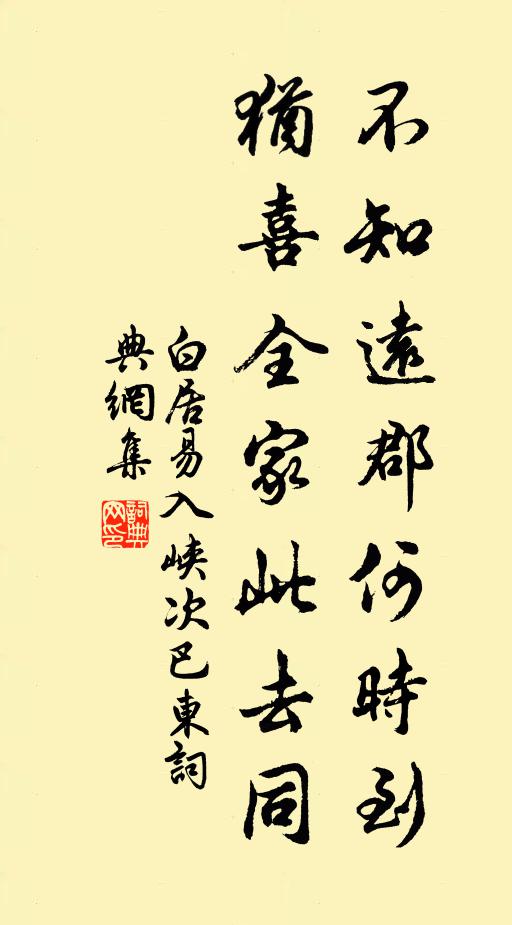 不知遠郡何時到
猶喜全家此去同
白居易入峽次巴東詞
典網集
詞典網印